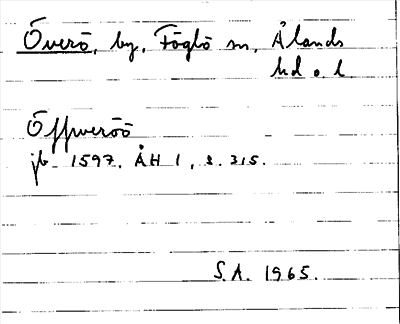 Överö, by, Föglö sn, Ålands
hd o. l.
Öffweröö
jb 1597. ÅH I, s. 315.
S.A. 1965.